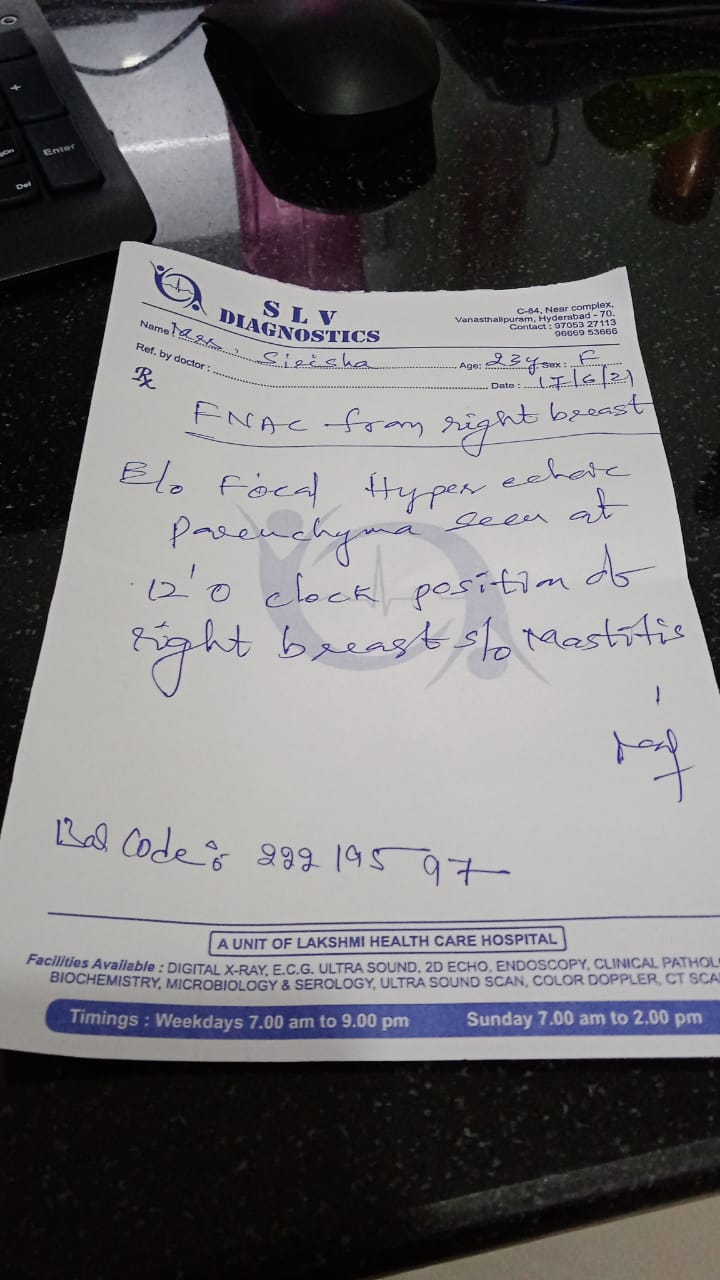 +
Enter
Del
SLV
DIAGNOSTICS
C-84, Near complex,
Vanasthalipuram, Hyderabad - 70.
Contact : 97053 27113
96669 53666
Name Sirisha Age: 23y Sex: F
Ref. by doctor : Date : 17/6/21
Rx
FNAC from right breast
E/o Focal Hyper echoic
Parenchyma seen at
12'o clock position of
right breast s/o Mastitis
Bar Code: 222 195 97
A UNIT OF LAKSHMI HEALTH CARE HOSPITAL
Facilities Available : DIGITAL X-RAY, E.C.G. ULTRA SOUND, 2D ECHO, ENDOSCOPY, CLINICAL PATHOL
BIOCHEMISTRY, MICROBIOLOGY & SEROLOGY, ULTRA SOUND SCAN, COLOR DOPPLER, CT SCA
Timings : Weekdays 7.00 am to 9.00 pm Sunday 7.00 am to 2.00 pm